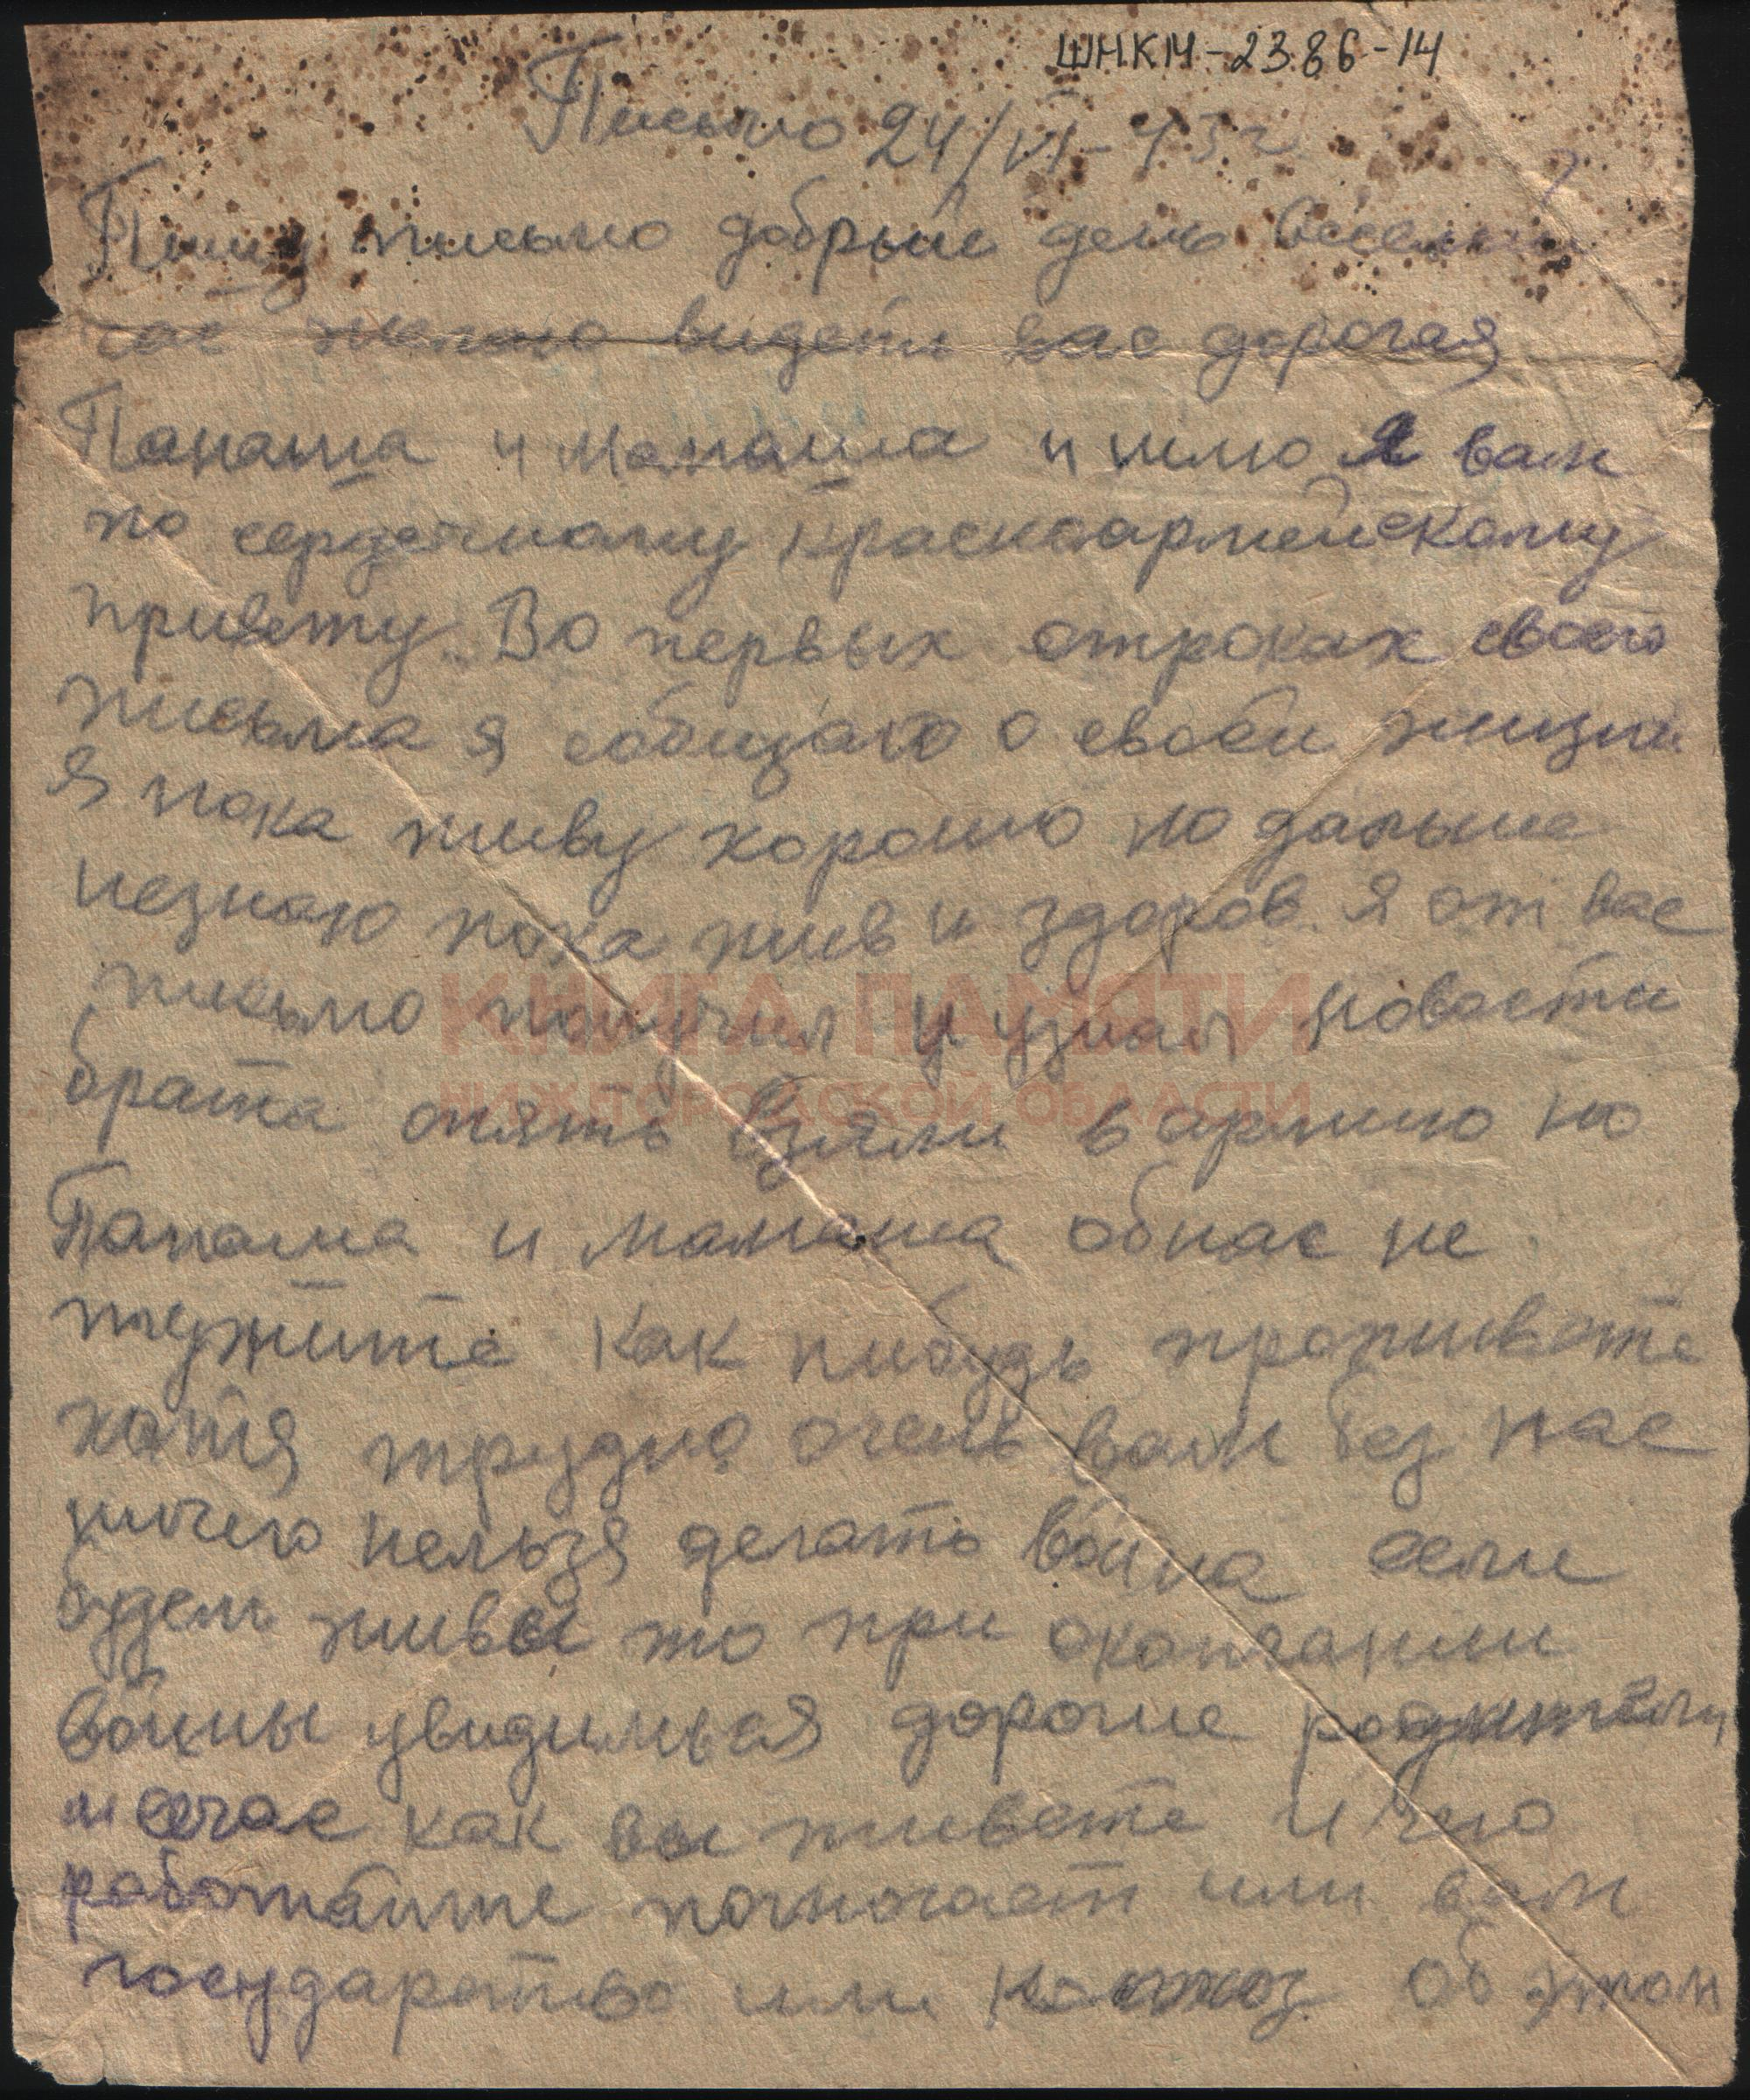 ШНКМ-2386-14
Письмо 24/VI-43г
Пишу письмо добрый день веселый
час желаю видеть вас дорогая
Папаша и мамаша и шлю я вам
по сердечному красноармейскому
привету. Во первых строках своего
письма я собщаю о своей жизни
Я пока живу хорошо но дальше
незнаю пока жив и здоров. Я от вас
письмо получил и узнал новости
КНИГА ПАМЯТИ
НИЖЕГОРОДСКОЙ ОБЛАСТИ
брата опять взяли в армию но
Папаша и мамаша обнас не
тужите как нибудь проживете
хотя трудно очень вам без нас
ничего нельзя делать война если
будем живы то при окончании
войны увидимься дорогие родители
сечас как вы живете и чего
работаите помогает или вам
государство или колхоз об этом